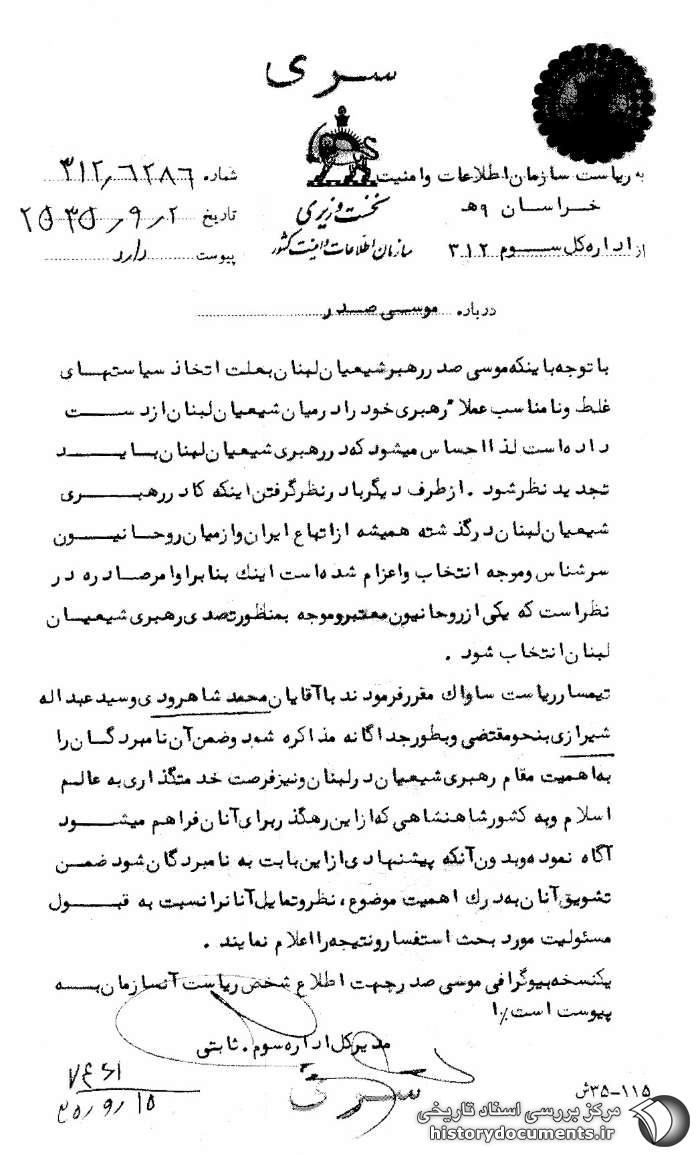 سری
به ریاست سازمان اطلاعات وامنیت
خراسان ۹هـ
از اداره کل سوم ۳۱۲
نخست وزیری
سازمان اطلاعات و امنیت کشور
شماره ۳۱۲٫۶۲۸۶
تاریخ ۲۵۳۵٫۹٫۲
پیوست دارد
درباره موسی صدر
با توجه باینکه موسی صدر رهبر شیعیان لبنان بعلت اتخاذ سیاستهای
غلط ونامناسب عملا" رهبری خود را در میان شیعیان لبنان از دست
داده است لذا احساس میشود که در رهبری شیعیان لبنان باید
تجدید نظر شود . از طرف دیگر با در نظر گرفتن اینکه کادر رهبری
شیعیان لبنان در گذشته همیشه از اتباع ایران و از میان روحانیون
سرشناس وموجه انتخاب واعزام شده است اینک بنابر اوامر صادره در
نظر است که یکی از روحانیون معتبر وموجه بمنظور تصدی رهبری شیعیان
لبنان انتخاب شود .
تیمسار ریاست ساواک مقرر فرمودند با آقایان محمد شاهرودی وسید عبداله
شیرازی بنحو مقتضی وبطور جداگانه مذاکره شود وضمن آن نامبردگان را
به اهمیت مقام رهبری شیعیان در لبنان ونیز فرصت خدمتگذاری به عالم
اسلام وبه کشور شاهنشاهی که از این رهگذر برای آنان فراهم میشود
آگاه نموده وبدون آنکه پیشنهادی از این بابت به نامبردگان شود ضمن
تشویق آنان به درک اهمیت موضوع، نظر وتمایل آنانرا نسبت به قبول
مسئولیت مورد بحث استفسار ونتیجه را اعلام نمایند .
یکنسخه بیوگرافی موسی صدر جهت اطلاع شخص ریاست آنسازمان به
پیوست است٪ا
مدیر کل اداره سوم . ثابتی
سری
۳۵/۹/۱۵
۱۱۵-۳۵ش
مرکز بررسی اسناد تاریخی
historydocuments.ir